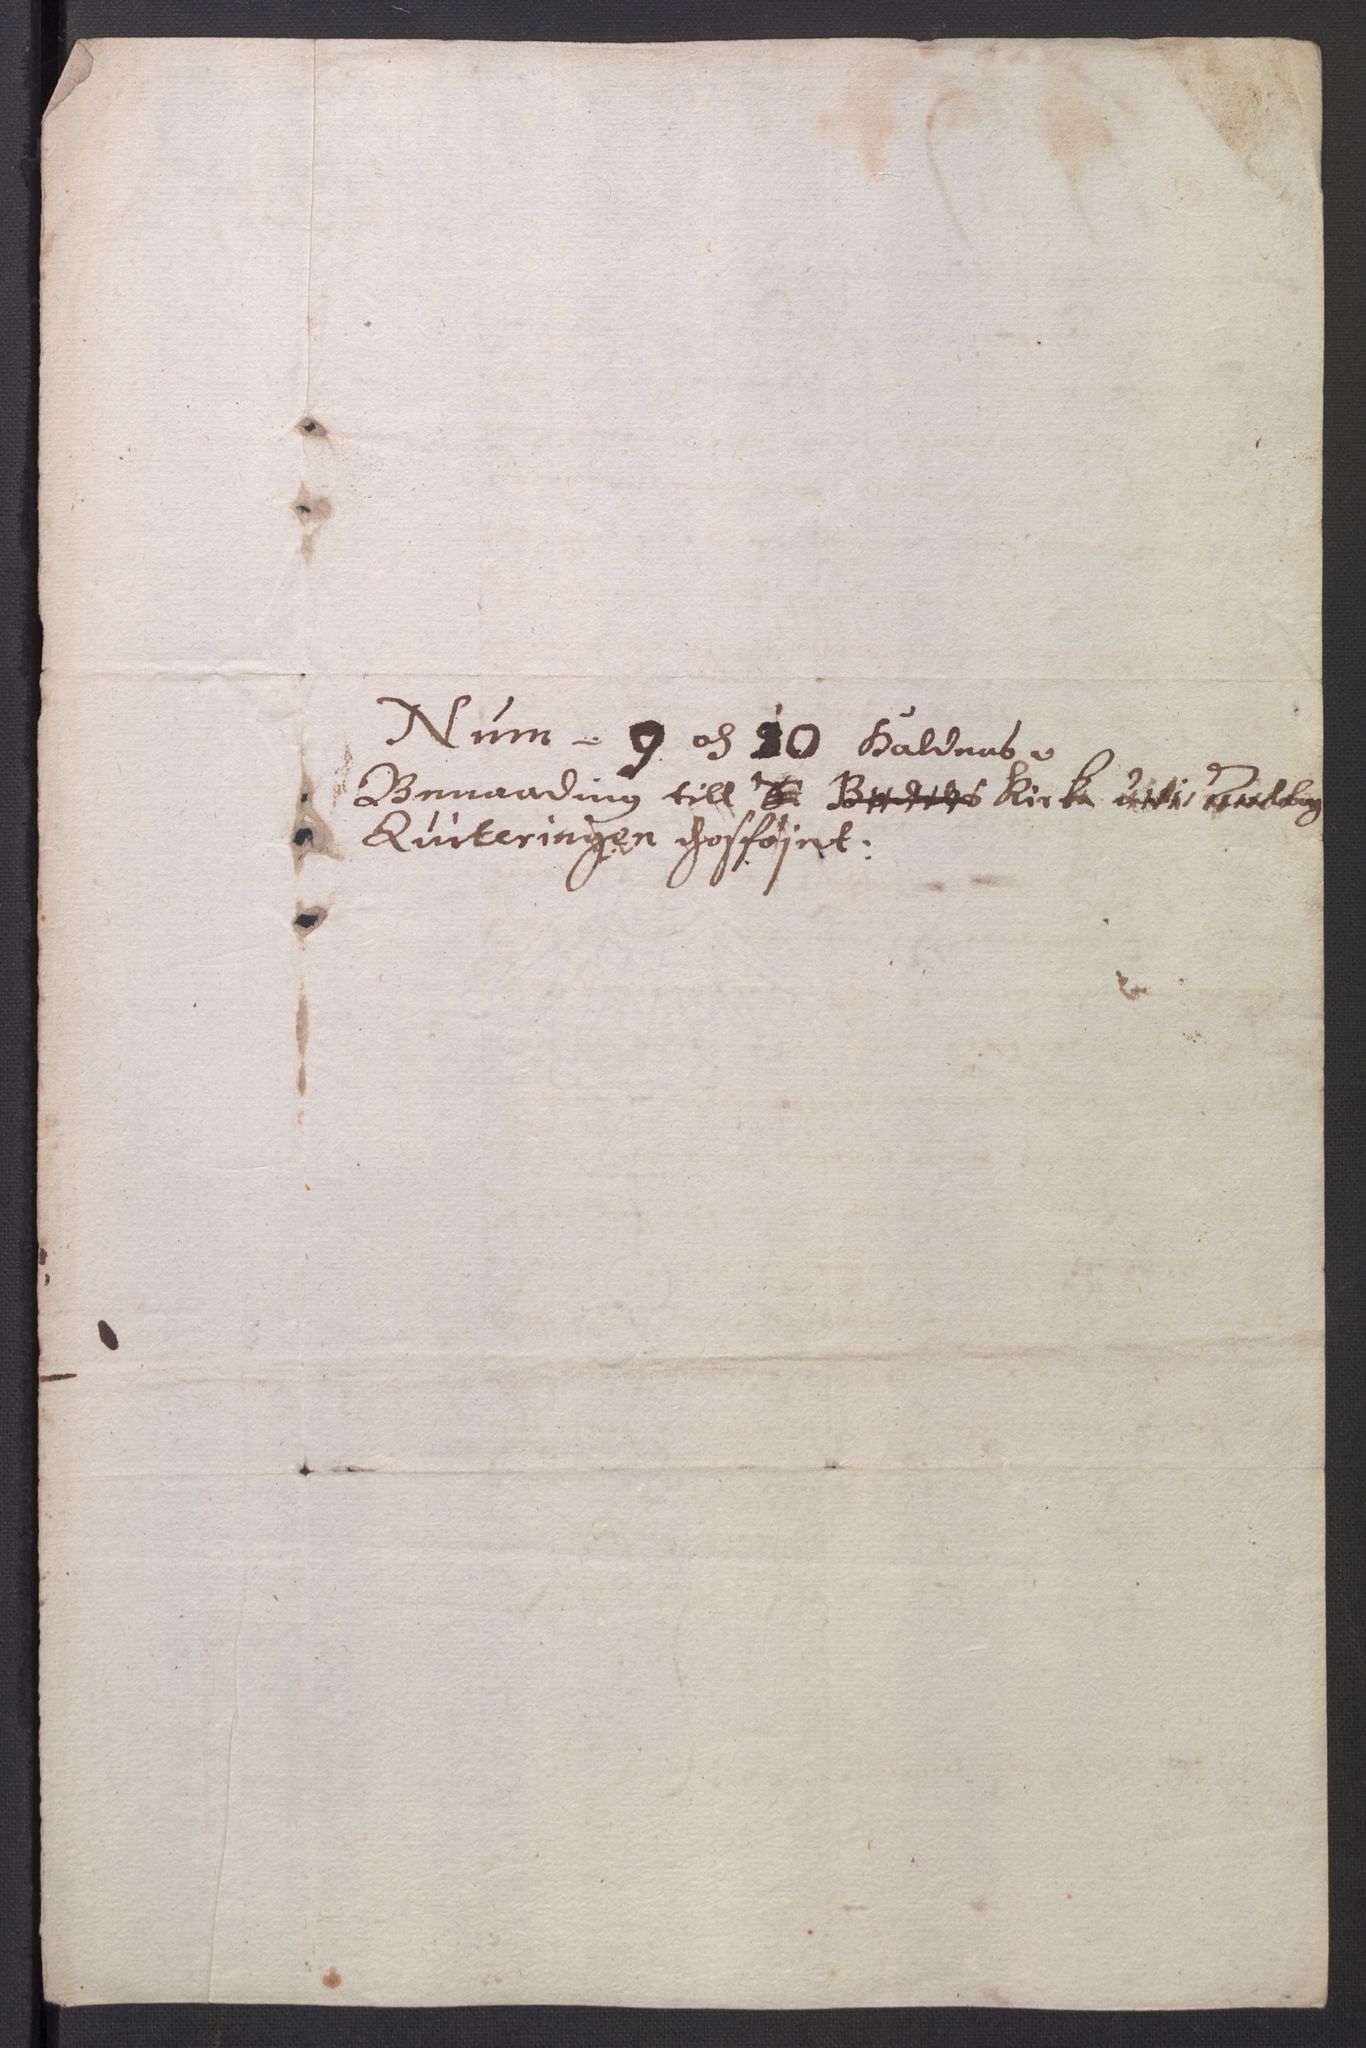 Num - 9 och 10 Haldnes
Benaading till Kirke
Quiteringen hosføjet: